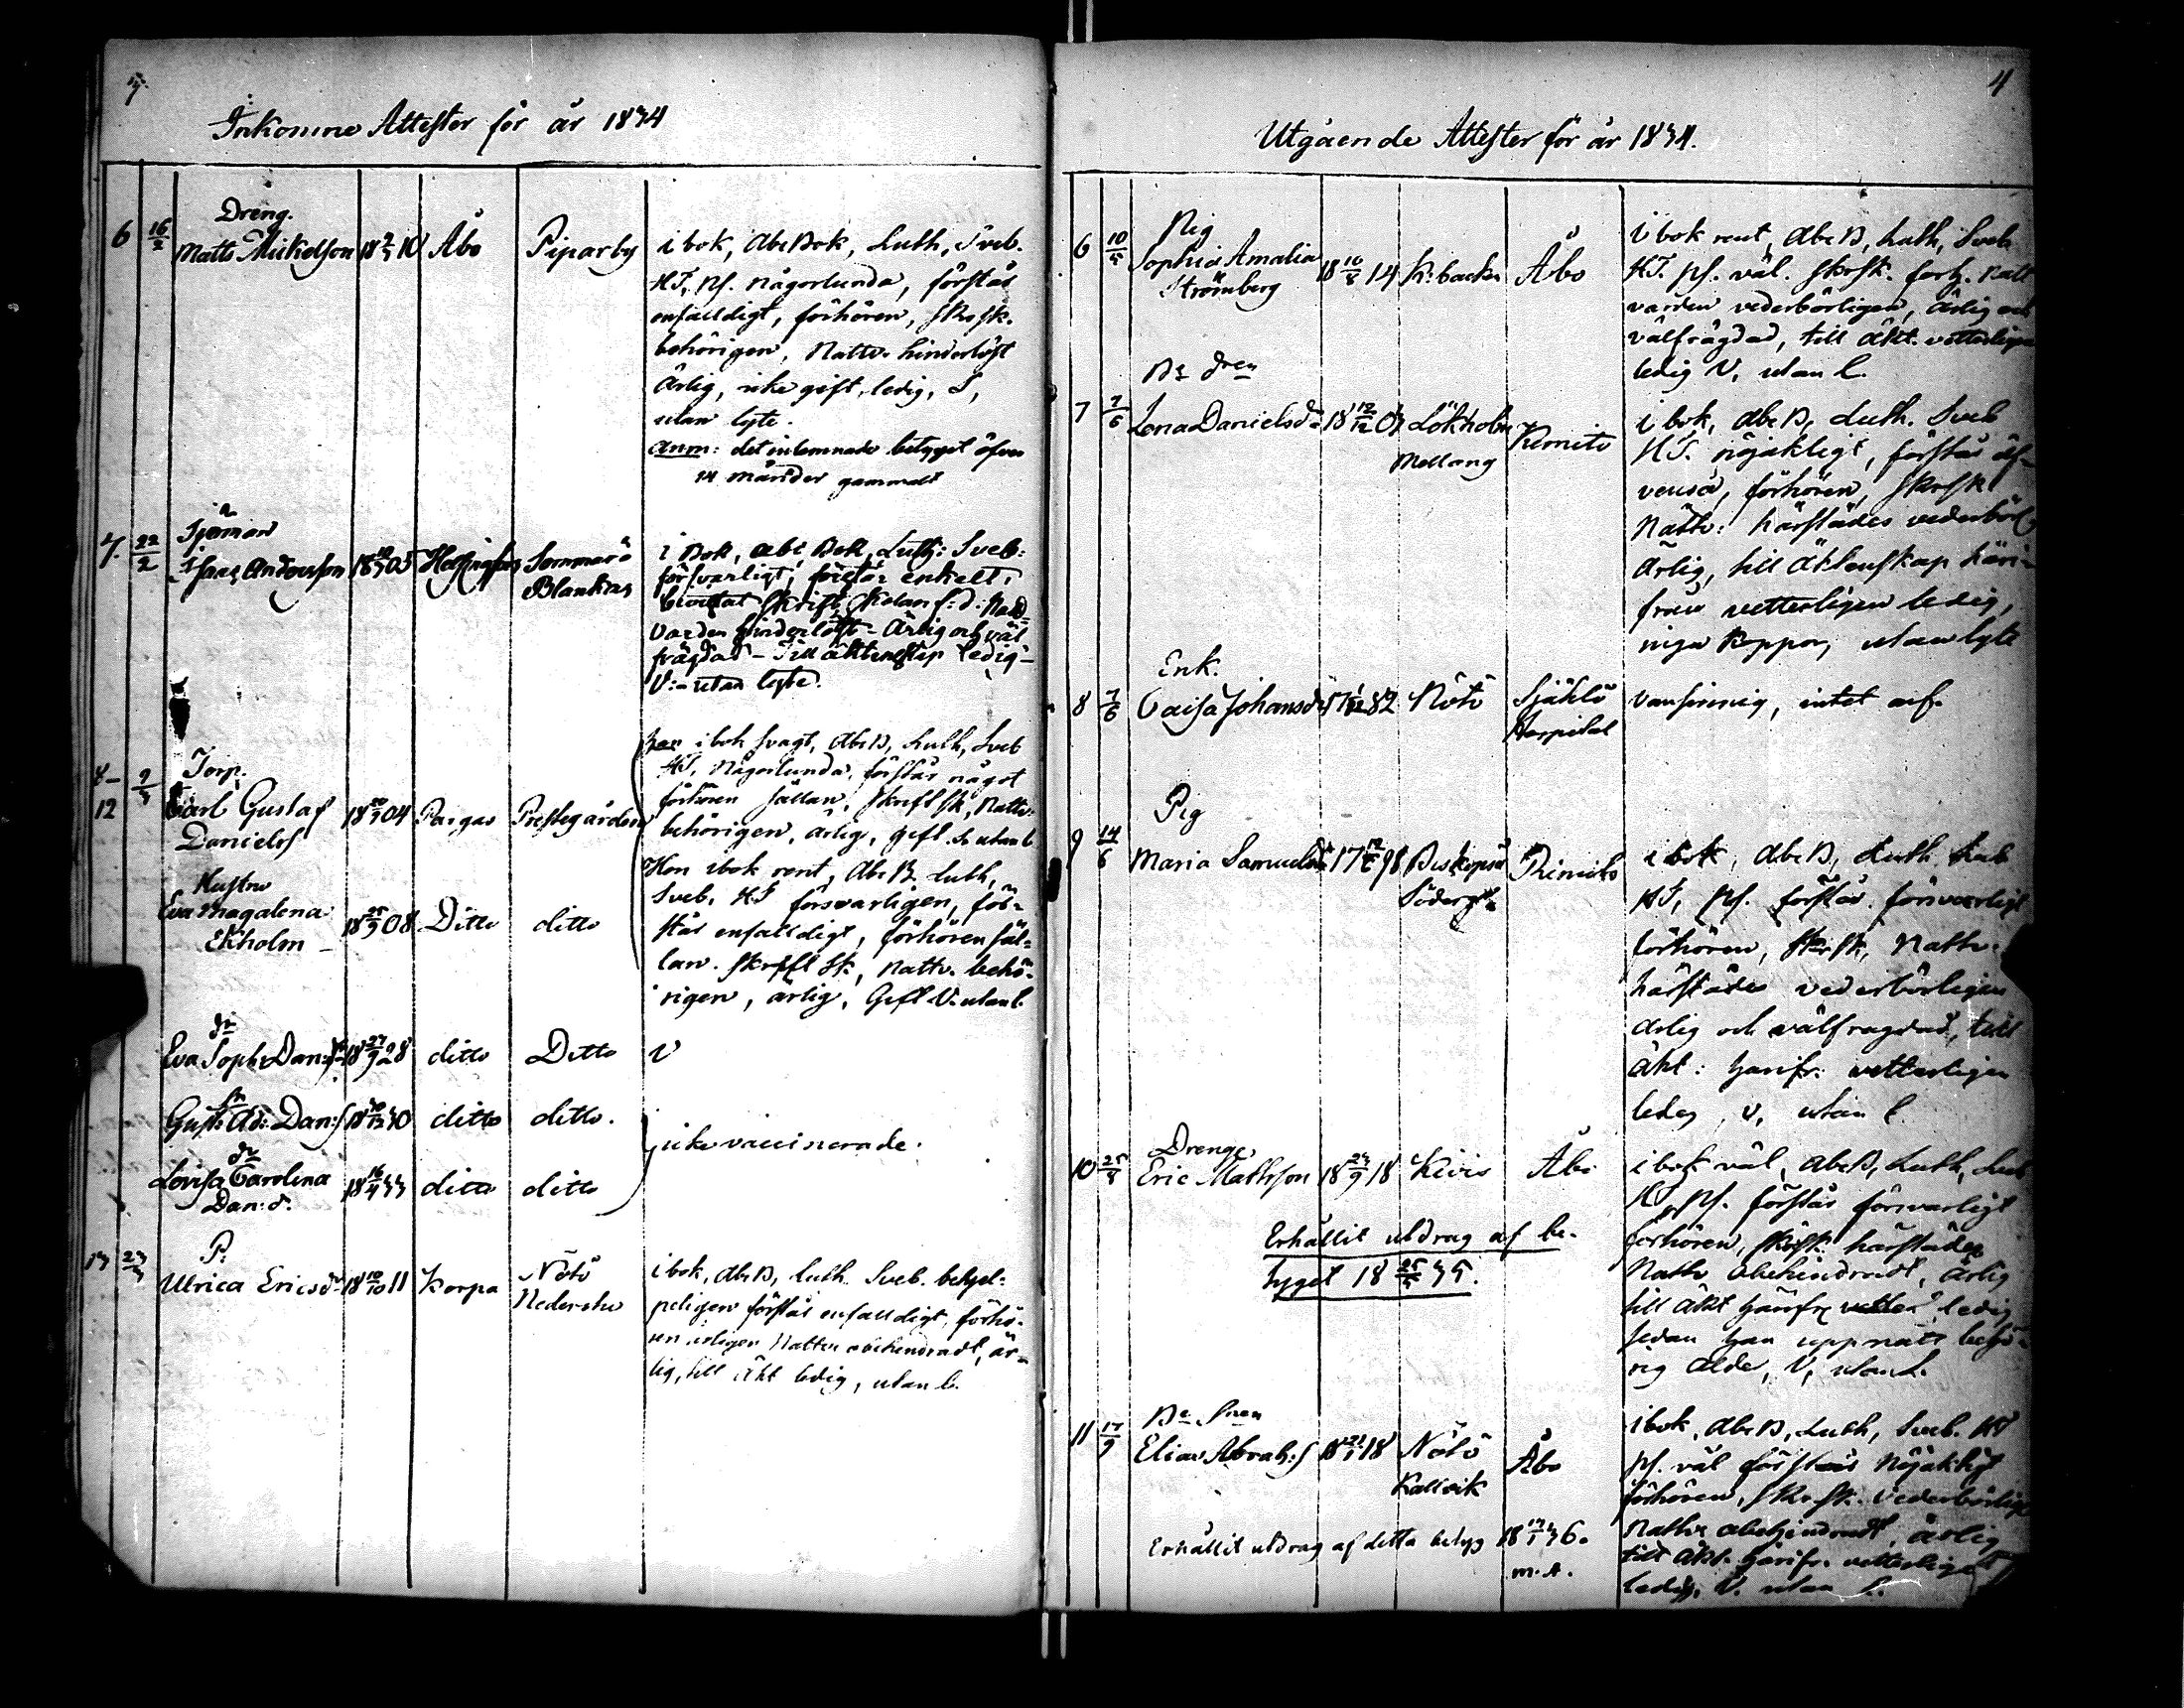 Inkomne Attester för år 1834
Dreng.
6 16/2 Matts Mickelsson 18 9/3 10 Åbo Piparby i bok, Abc Bok, Luth, Sveb.
HT, ps. någorlunda, förstår
enfalldigt, förhören, skrsk.
behörigen, Nattv. hinderlöst
Ärlig, icke gift, ledig, S,
utan lyte.
Anm: det inlemnade betyget öfver
14 månader gammalt
Sjöman
7. 22/2 Isaac Andersson 18 05 Helsingfors Sommarö
Blankas
i Bok, abc Bok, Luth: Sveb:
försvarligt, förstår enkelt,
bevistat Skrift Skolan f:d. Natt
varden hinderlöst - Ärlig och väl
frägdad - Till äktenskap ledig -
V: - utan lyte.
8 - 12 9/3 Torp.
Carl Gustaf
Daniels
18 04 Pargas Prestegården
han i bok svagt, Abc B, Luth, Sveb
HT, Någorlunda, förstår något
förhören sällan, Skrift sk, Nattv.
behörigen, ärlig, gift. S. utan l
Hustru
Eva Magalena
Ekholm
18 25/3 08 Ditto ditto
Hon i bok rent, Abc B Luth,
Sveb, HT försvarligen, för-
står enfalldigt, förhören säl-
lan. Skrift Sk, Nattv. behö-
rigen, ärlig, Gift V. utan l.
dr
Eva Soph: Dan:s 18 27/9 28 ditto Ditto V
sn
Gust: Ad: Dan:s 18 30 ditto ditto.
icke vaccinerade.
dr
Lovisa Carolina
Dan: d.
18 16/4 33 ditto ditto
P:
13 23/3 Ulrica Ericsd. 18 10/10 11 Korpo Nötö
Nederste
i bok, Abc B, Luth. Sveb. behjel-
peligen förstår enfalldigt, förhö-
ren årligen Nattv. obehindradt, är-
lig, till äkt ledig, utan l.
4
Utgående Attester för år 1834.
Pig
6 10/5 Sophia Amalia
Strömberg
18 10/8 14 K:backa Åbo
i bok rent, Abc B, Luth, Sveb
HT. ps. väl. skrsk. förh. Natt
varden vederbörligen, Ärlig och
välfrägdad, till äkt. vetterligen
ledig V, utan l.
Be dren
7 7/6 Lena Danielsd. 18 12/12 03 Lökholm
Mellang
Kimito
i bok, Abc B, Luth. Sveb
HT. nöjakligt, förstår äf-
venså, förhören, Skrsk
Nattv: härstädes vederbörl
Ärlig, till Äktenskap häri-
från vetterligen ledig,
inga Koppor, utan lyte
Enk.
8 7/6 Caisa Johansdr 17 82 Nötö Själö
Hospital
vansinnig, intet auf.
Pig
9 14/6 Maria Samuelsdr 17 98 Biskopsö
Söderg:
Kimito
i bok, Abc B, Luth Sveb
HT, ps. förstår försvarligt
förhören, skrsk, Nattv.
härstädes vederbörligen
ärlig och välfrägdad, till
äkt: härifr: vetterligen
ledig, v, utan l
Drenge
10 25/8 Eric Mathsson 18 23/9 18 Kivis Åbo
i bok väl, Abc B, Luth, Sveb
HT, ps. förstår försvarligt
förhören, Skrsk. härstädes
Nattv obehindradt, Ärlig
till äkt härifr: vetterl ledig
sedan han uppnått behö-
rig ålder, V, utan L.
Erhållit utdrag af be-
tyget 18 25/5 35.
Be Snen
11 17/9 Elias Abrah:s 18 21/1 18 Nötö
Kallvik
Åbo
i bok, Abc B, Luth, Sveb. HT
ps. väl förstår Nöjakligt
förhören, Skrsk. Vederbörlige
Nattv. obehindradt, ärlig
till äkt. härifr. vetterligen
ledig, V. utan l.
Erhållit utdrag af detta betyg 18 13/1 36.
m. A.